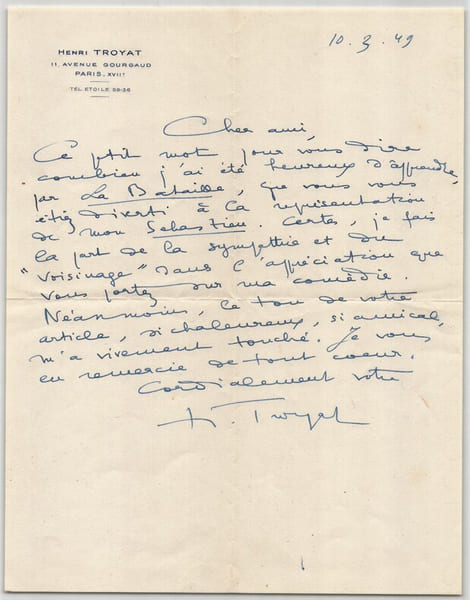 HENRI TROYAT
11, AVENUE GOURGAUD
PARIS. XVIIe
TÉL. ÉTOILE 58-36
10. 3. 49
Cher ami,
Ce petit mot pour vous dire
combien j'ai été heureux d'apprendre,
par La Bataille, que vous vous
étiez diverti à la représentation
de mon Sébastien. Certes, je fais
la part de la sympathie et du
"voisinage" dans l'appréciation que
vous portez sur ma comédie.
Néanmoins, le ton de votre
article, si chaleureux, si amical,
m'a vivement touché. Je vous
en remercie de tout coeur.
Cordialement votre
H. Troyat